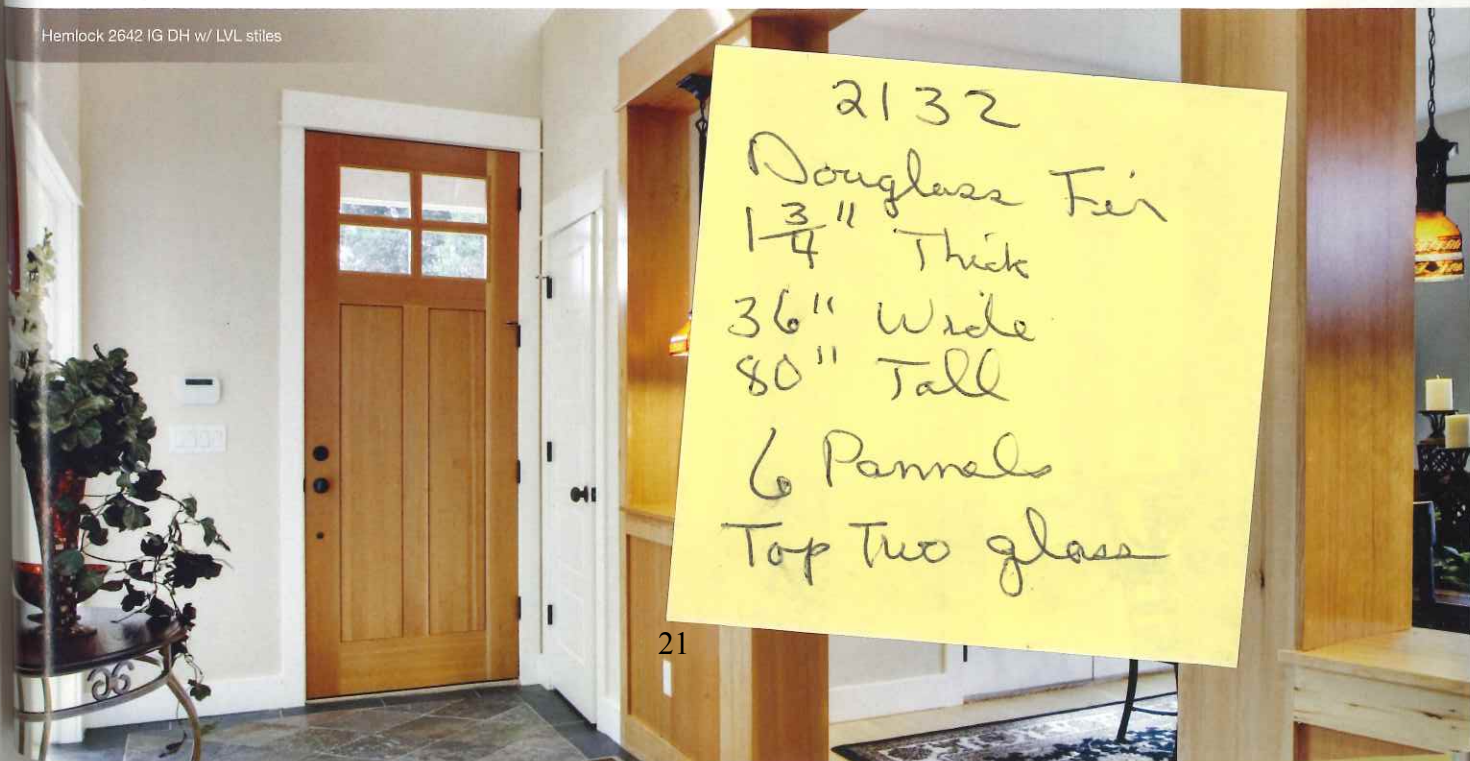 Hemlock 2642 IG DH w/ LVL stiles
2132
Douglass Fir
1 3/4" Thick
36" Wide
80" Tall
6 Pannels
Top Two glass
21